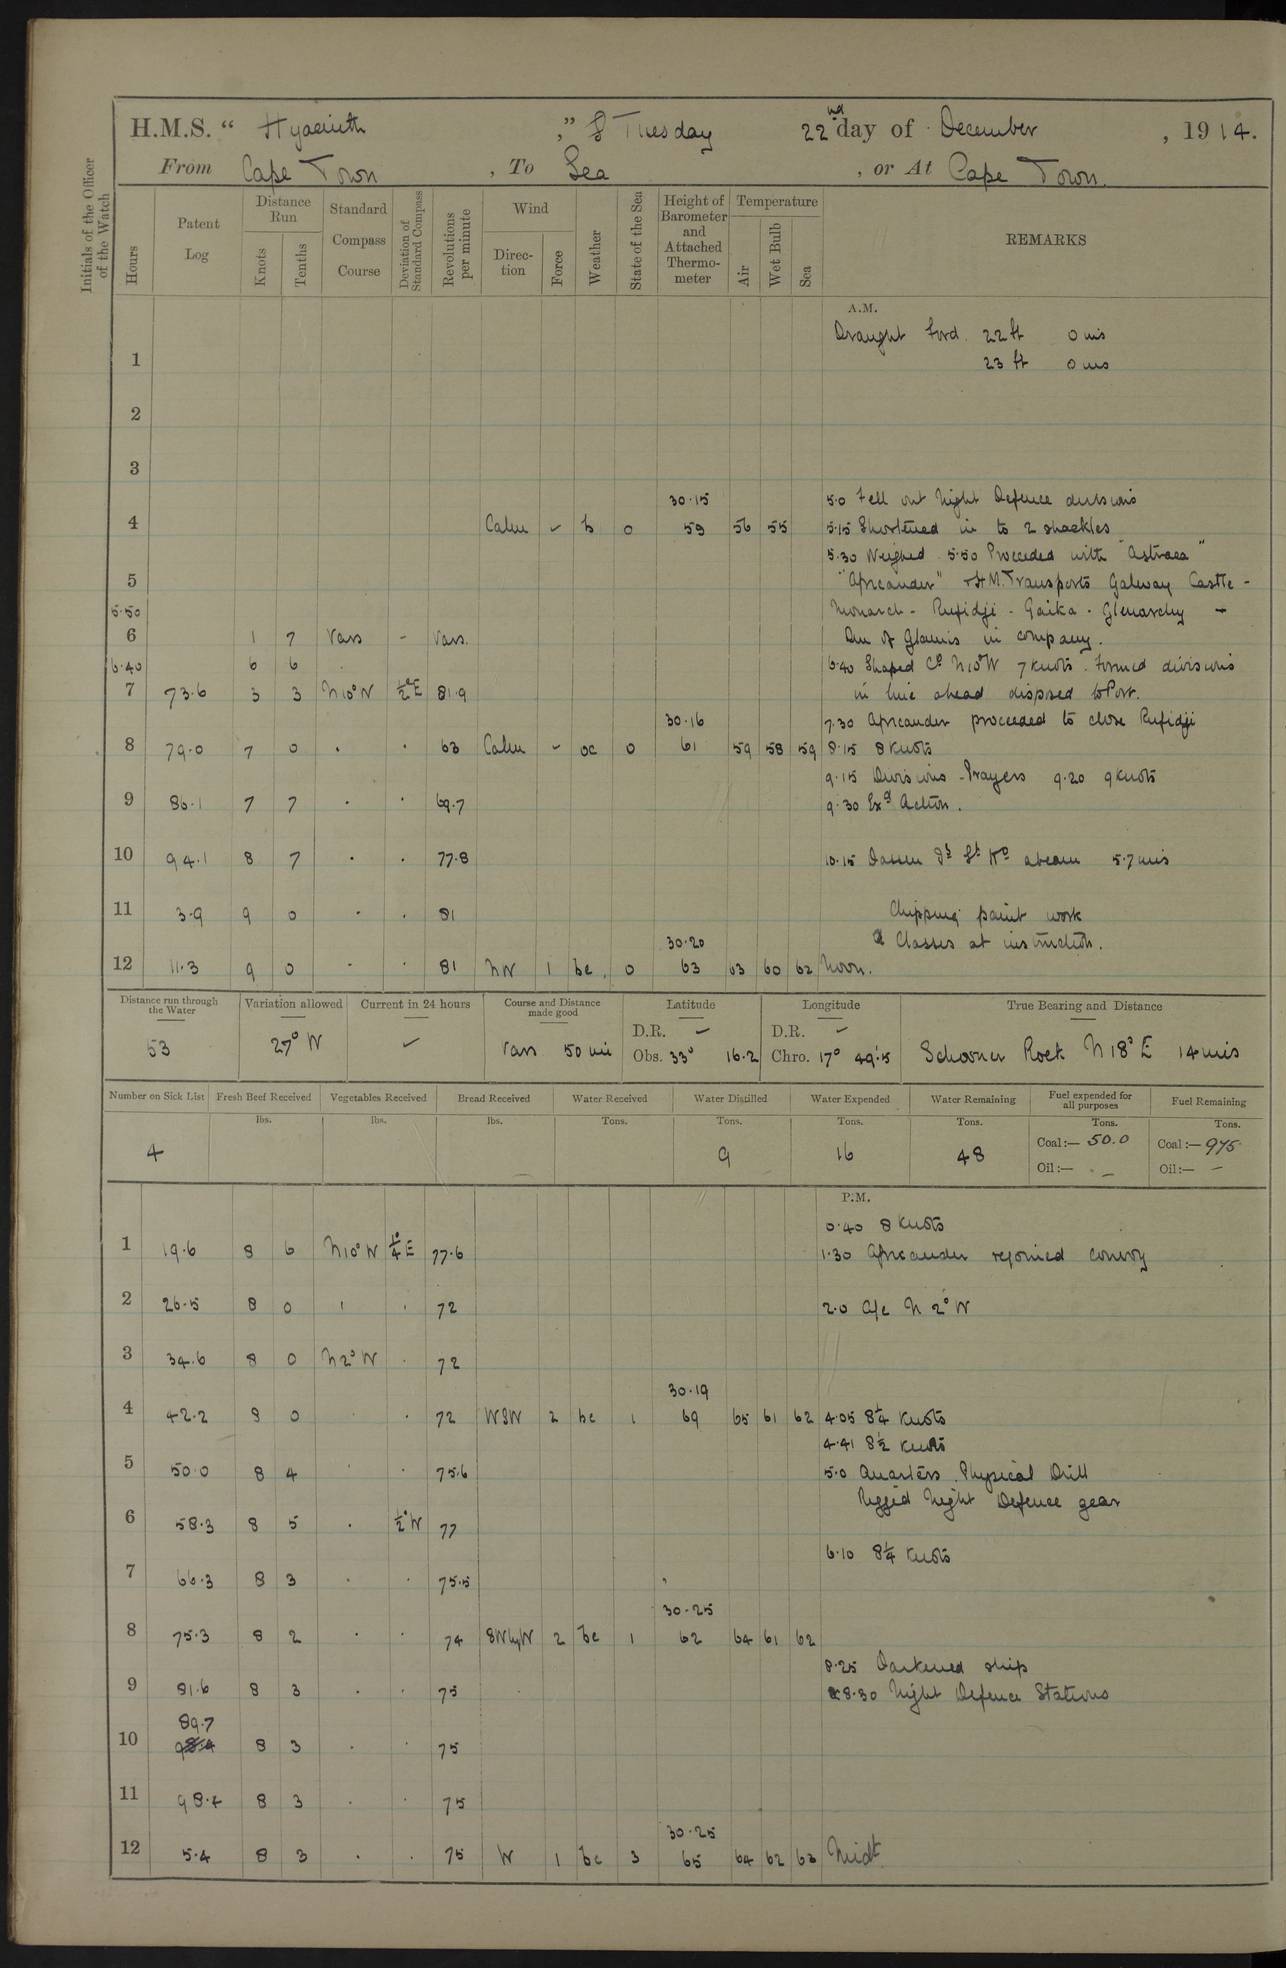 H.M.S. “ Hyacinth ,” Tuesday 22nd day of December , 1914.
From Cape Town , To Sea , or At Cape Town.
Initials of the Officer of the Watch
Hours
Patent Log
Distance Run
Knots
Tenths
Standard Compass Course
Deviation of Standard Compass
Revolutions per minute
Wind
Direction
Force
Weather
State of the Sea
Height of Barometer and Attached Thermometer
Temperature
Air
Wet Bulb
Sea
REMARKS
A.M.
Draught Ford. 22 ft 0 ins
1 23 ft 0 ins
2
3
30.15 5.0 Fell out Night Defence divisions
4 Calm - b 0 59 56 55 5.15 Shortened in to 2 shackles
5.30 Weighed 5.50 Proceeded with "Astraea"
5 "Africander" + H.M. Transports Galway Castle -
5.50 Monarch - Rufidji - Gaika - Glenarchy +
6 1 7 Vars - Vars. of Glamis in company.
6.40 6 6 6.40 Shaped Co N10°W 7 knots. Formed divisions
7 73.6 3 3 N10°W ½°E 81.9 in line ahead disposed to Port.
30.16 7.30 Africander proceeded to close Rufidji
8 79.0 7 0 . . 63 Calm - oc 0 61 59 58 59 8.15 8 knots
9.15 Divisions - Prayers 9.20 9 knots
9 86.1 7 7 . . 69.7 9.30 Exd Action.
10 94.1 8 7 . . 77.8 10.15 Dassen Id Lt Ho abeam 5.7 mis
11 3.9 9 0 . . 81 Chipping paint work
30.20 Classes at instruction.
12 11.3 9 0 . . 81 NW 1 bc. 0 63 63 60 62 Noon.
Distance run through the Water
Variation allowed
Current in 24 hours
Course and Distance made good
Latitude
Longitude
True Bearing and Distance
D.R. - D.R. -
53 27° W - Vars 50 mi Obs. 33° 16.2 Chro. 17° 49'.5 Schooner Rock N 18° E 14 mis
Number on Sick List
Fresh Beef Received
Vegetables Received
Bread Received
Water Received
Water Distilled
Water Expended
Water Remaining
Fuel expended for all purposes
Fuel Remaining
lbs. lbs. lbs. Tons. Tons. Tons. Tons. Tons. Tons.
4 9 16 48 Coal:— 50.0 Coal:— 975
Oil:— - Oil:— -
P.M.
0.40 8 knots
1 19.6 8 6 N10°W ¼°E 77.6 1.30 Africander rejoined convoy
2 26.5 8 0 ' ' 72 2.0 A/c N 2° W
3 34.6 8 0 N2°W . 72
30.19
4 42.2 8 0 . . 72 WSW 2 bc 1 69 65 61 62 4.05 8¼ knots
4.41 8½ knots
5 50.0 8 4 . . 75.6 5.0 Quarters. Physical Drill
Rigged Night Defence gear
6 58.3 8 5 . ½°W 77
6.10 8¼ knots
7 66.3 8 3 . . 75.5
30.25
8 75.3 8 2 . . 74 SWbyW 2 bc 1 62 64 61 62
8.25 Darkened ship
9 81.6 8 3 . . 75 8.30 Night Defence Stations
89.7
10 98.4 8 3 . . 75
11 98.4 8 3 . . 75
30.25
12 5.4 8 3 . . 75 W 1 bc 3 65 64 62 63 Midt.